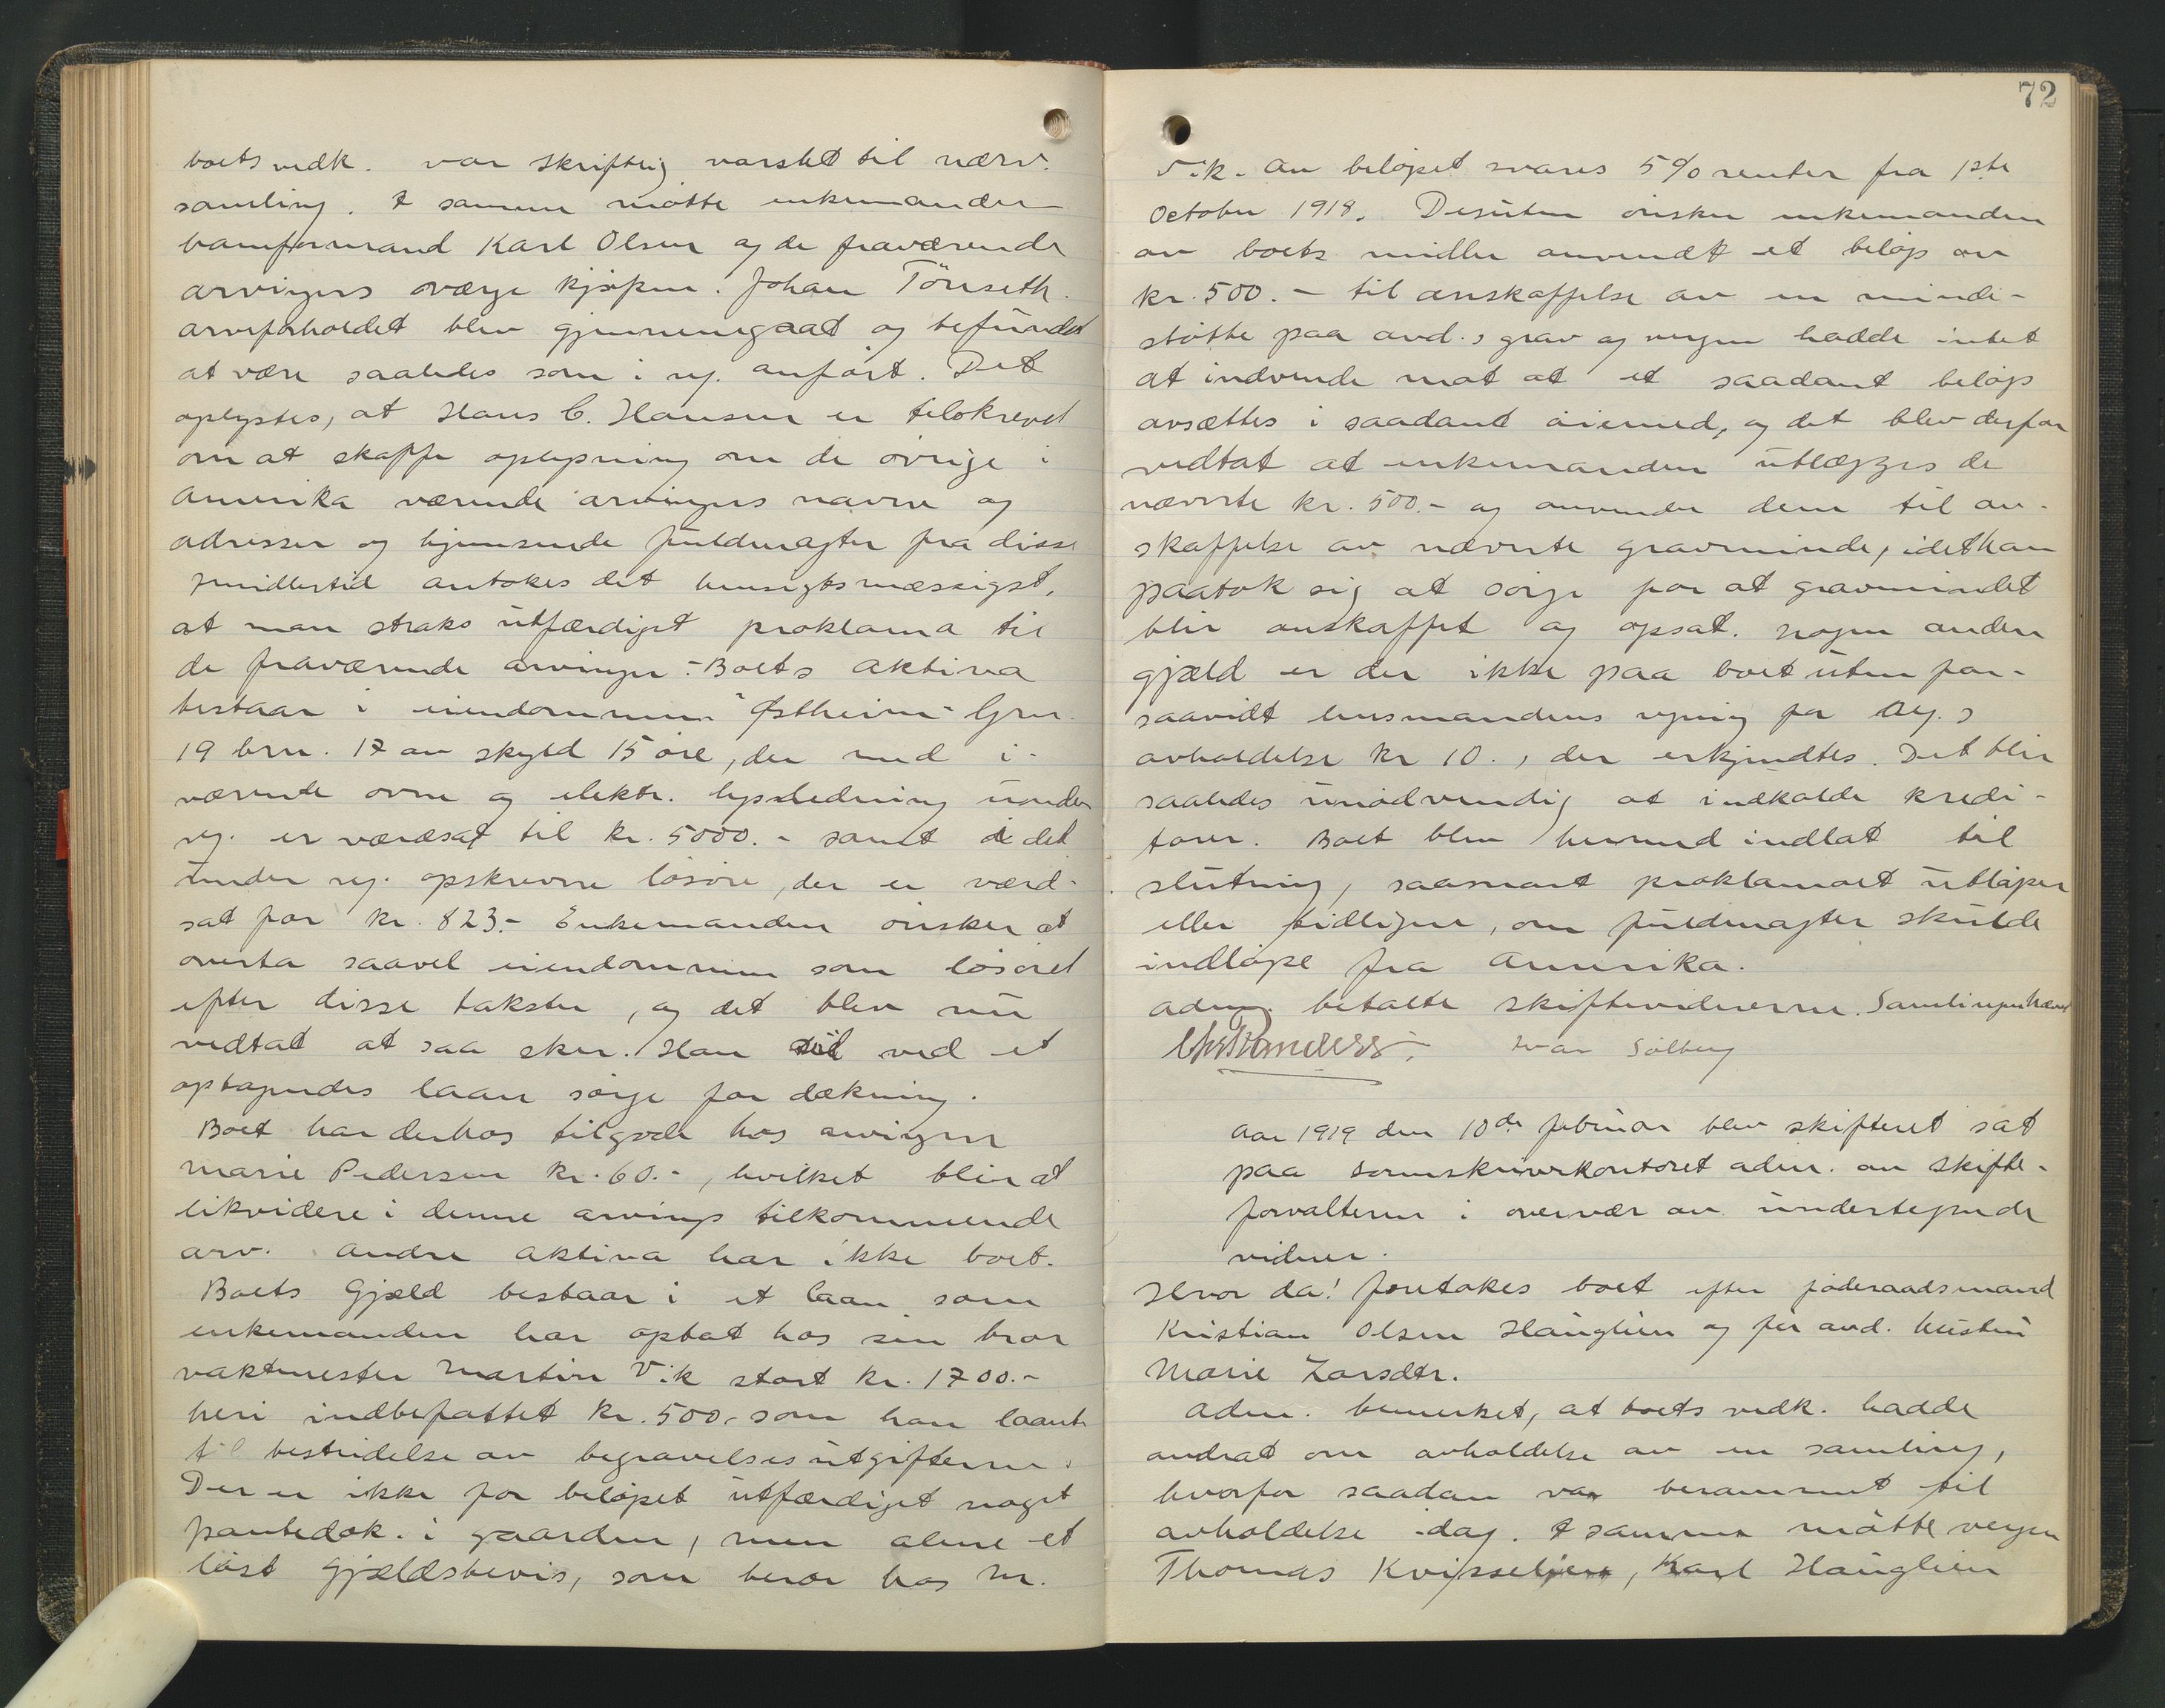 boets vedk. var skriftlig varslet til nærv.
samling. I samme møtte enkemanden
banformand Karl Olsen og de fraværende
arvingers verge kjøpm. Johan Tönseth.
arveforholdet blev gjennemgaat og befundet
at være saaledes som i reg. anført. Det
oplystes, at Hans C. Hansen er tilskrevet
om at skaffe oplysning om de øvrige i
Amerika værende arvingers navne og
adresser og hjemsende fuldmagter fra disse
Imidlertid antokes det hensigtsmæssigst,
at man straks utfærdiget proklama til
de fraværende arvinger. - Boets aktiva
bestaar i eiendommen "Østheim" Grn.
19 brn. 17 av skyld 15 øre, der med i-
værende ovne og elektr. lysledning under
reg. er værdsat til kr. 5000.- samt i det
under reg. opskrevne løsøre, der er værd-
sat for kr. 823.- Enkemanden ønsker at
overta saavel eiendommen som løsøret
efter disse takster, og det blev nu
vedtat at saa sker. Han vil ved et
optagendes laan sørge for dækning.
Boet har derhos tilgode hos arvingen
Marie Pedersen kr. 60.-, hvilket blir at
likvidere i denne arvings tilkommende
arv. Andre aktiva har ikke boet.
Boets Gjæld bestaar i et laan som
enkemanden har optat hos sin bror
vaktmester Martin Vik stort kr. 1700.-
heri indbefattet kr. 500,- som han laante
til bestridelse av begravelsesutgifterne.
Der er ikke for beløpet utfærdiget noget
pantedok. i gaarden, men alene et
løst gjældsbevis, som beror hos M.
72
Vik. Av beløpet svares 5% renter fra 1ste
October 1918. Desuten ønsker enkemanden
av boets midler anvendt et beløp av
kr. 500.- til anskaffelse av en minde-
støtte paa avd.s grav og vergen hadde intet
at indvende mot at et saadant beløp
avsættes i saadant øiemed, og det blev derfor
vedtat at enkemanden utlægges de
nævnte kr. 500.- og anvender dem til an-
skaffelse av nævnte gravminde, idet han
paatok sig at sørge for at gravmindet
blir anskaffet og opsat. Nogen anden
gjæld er der ikke paa boet uten for-
saavidt lensmandens regning for reg.s
avholdelse kr 10., der erkjendtes. Det blir
saaledes unødvendig at indkalde kredi-
torer. Boet blev herved indlat til
slutning, saasnart proklamaet utløper
eller tidligere, om fuldmagter skulde
indløpe fra Amerika.
adm. betalte skiftevidnerne. Samlingen hævet
Ivar Solberg
Aar 1919 den 10de februar blev skifteret sat
paa sorenskriverkontoret adm. av skifte-
forvalteren i overvær av undertegnede
vidner.
Hvor da! foretokes boet efter føderaadsmand
Kristian Olsen Hauglien og før avd. hustru
Marie Larsdtr.
Adm. bemerket, at boets vedk. hadde
andrat om avholdelse av en samling,
hvorfor saadan var berammet til
avholdelse idag. I samme møtte vergen
Thomas Kvisselien, Karl Hauglien